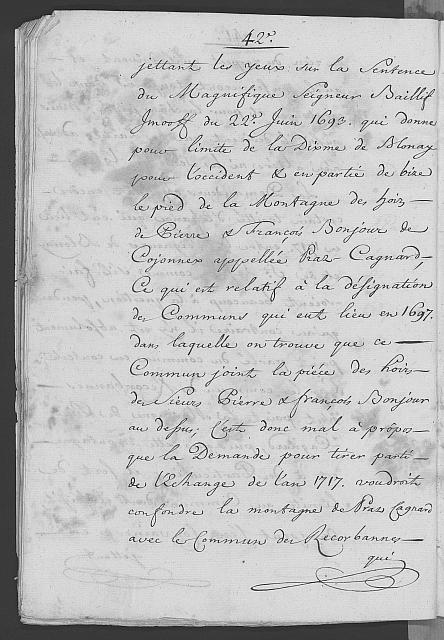 42.e
jettant les yeux sur la Sentence
du Magnifique Seigneur Baillif
Jmooff du 22.e Juin 1693. qui donne
pour limite de la Dixme de Blonay
pour l'occident & en partie de bize
le pied de la Montagne des hoirs —
de Pierre & François Bonjour de
Cojonnex appellée Praz-Cagnard —
Ce qui est relatif à la désignation
des Communs qui eut lieu en 1697.
dans laquelle on trouve que ce —
Commun joint la piéce des hoirs
des Sieurs Pierre & françois Bonjour
au dessus; C'est donc mal à propos
que la Demande pour tirer parti —
de l'Echange de l'an 1717. voudroit
confondre la montagne de Praz Cagnard
avec le Commun des Recorbannes —
qui